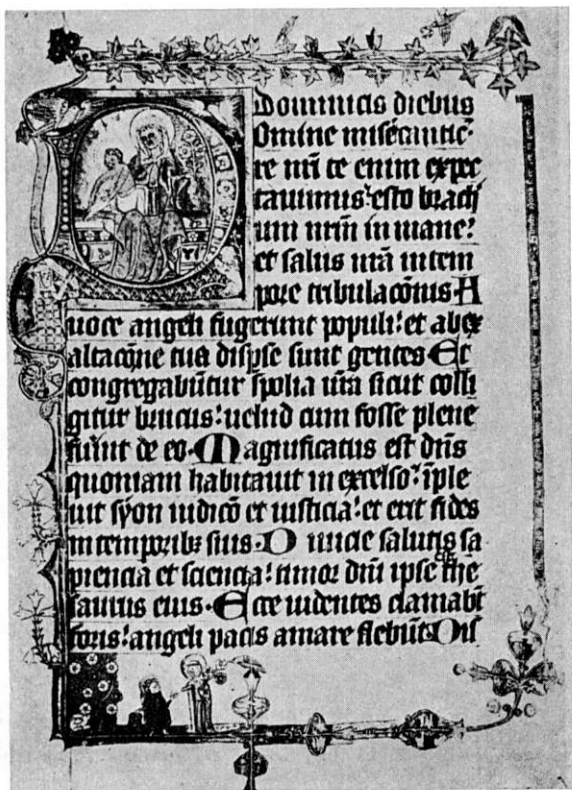 Dominicis diebus
Omine
re nri te enim expec
tauimus: esto brachi
um nrm in mane:
et salus nra in tem
pore tribulacōnis A
uoce angeli fugerunt populi: et ab ex
altacōne tua dispse sunt gentes Et
congregabūtur spolia ura sicut colli
gitur brucus: uelud cum fosse plene
fuīnt de eo. Magnificatus est dn̄s
quoniam habitauit in excelso: īple
uit syon iudicō et iusticia: et erit fides
in temporibz suis. D iuicie salutis sa
piencia et sciencia: timor dn̄i ipse the
saurus eius. Ecce uidentes clamabt
foris: angeli pacis amare flebūt. Dis